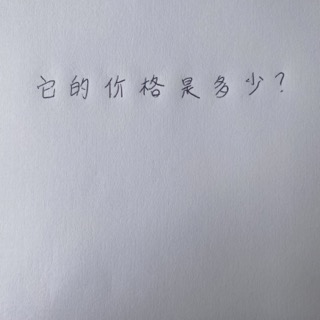 它的价格是多少?